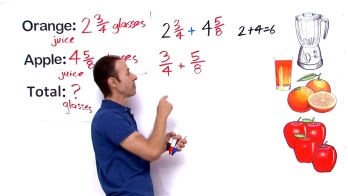 Orange: 2 3/4 glasses
juice
Apple: 4 5/8 glasses
juice
Total: ?
glasses
2 3/4 + 4 5/8
2+4=6
3/4 + 5/8